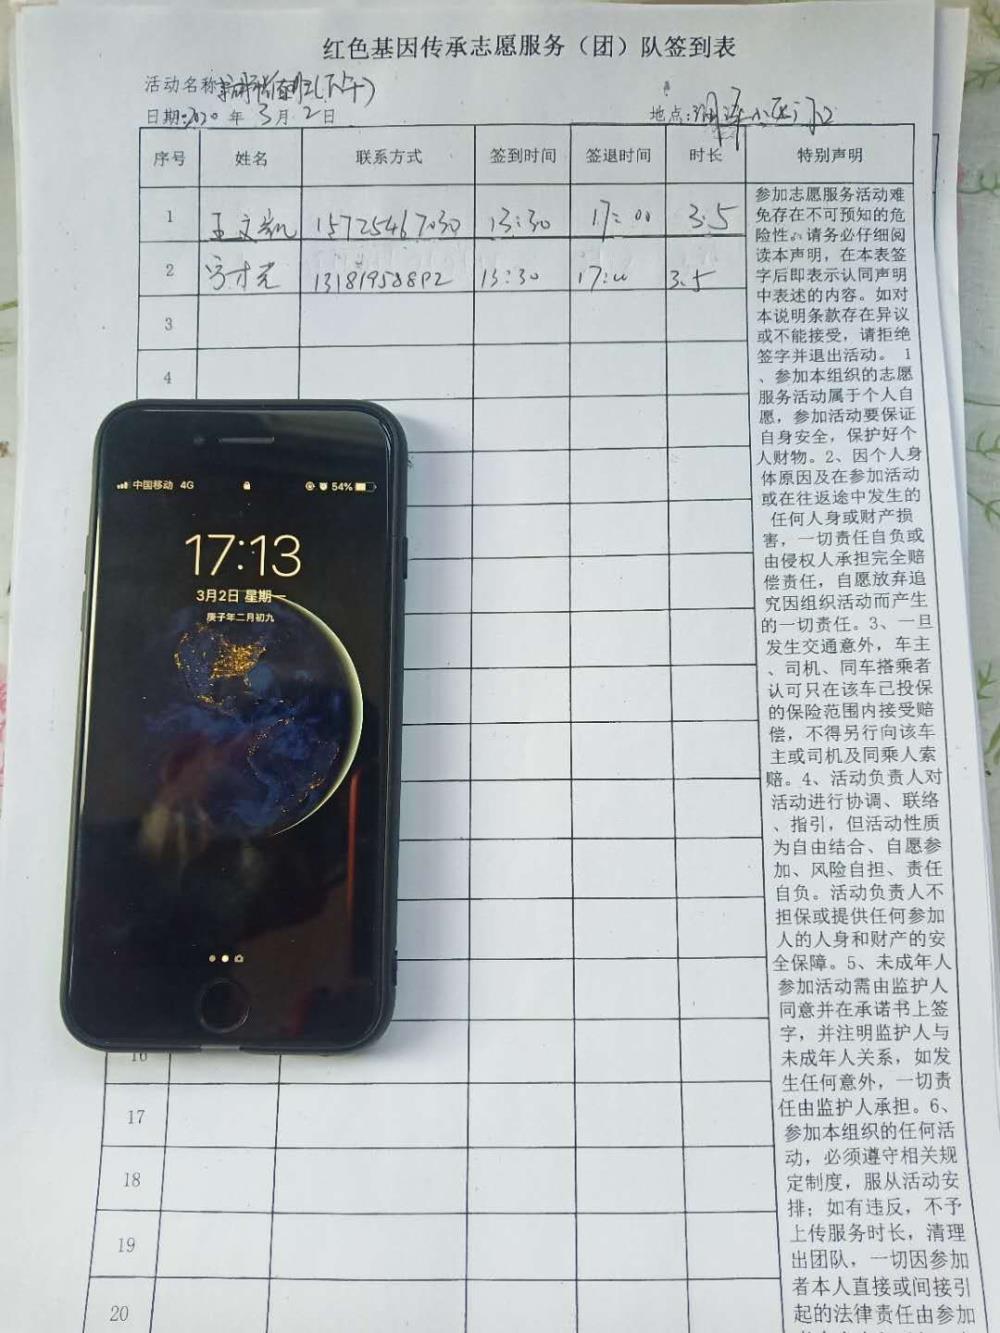 红色基因传承志愿服务（团）队签到表
活动名称 值班(下午)
日期:2020年3月2日 地点:润泽小区门口
序号 姓名 联系方式 签到时间 签退时间 时长 特别声明
1 王文凯 15725467030 13:30 17:00 3.5
2 13181958892 13:30 17:00 3.5
3
4
16
17
18
19
20
参加志愿服务活动难
免存在不可预知的危
险性。请务必仔细阅
读本声明，在本表签
字后即表示认同声明
中表述的内容。如对
本说明条款存在异议
或不能接受，请拒绝
签字并退出活动。 1
、参加本组织的志愿
服务活动属于个人自
愿，参加活动要保证
自身安全，保护好个
人财物。2、因个人身
体原因及在参加活动
或在往返途中发生的
任何人身或财产损
害，一切责任自负或
由侵权人承担完全赔
偿责任，自愿放弃追
究因组织活动而产生
的一切责任。3、一旦
发生交通意外，车主
、司机、同车搭乘者
认可只在该车已投保
的保险范围内接受赔
偿，不得另行向该车
主或司机及同乘人索
赔。4、活动负责人对
活动进行协调、联络
、指引，但活动性质
为自由结合、自愿参
加、风险自担、责任
自负。活动负责人不
担保或提供任何参加
人的人身和财产的安
全保障。5、未成年人
参加活动需由监护人
同意并在承诺书上签
字，并注明监护人与
未成年人关系，如发
生任何意外，一切责
任由监护人承担。6、
参加本组织的任何活
动，必须遵守相关规
定制度，服从活动安
排；如有违反，不予
上传服务时长，清理
出团队，一切因参加
者本人直接或间接引
起的法律责任由参加
中国移动 4G 54%
17:13
3月2日 星期一
庚子年二月初九